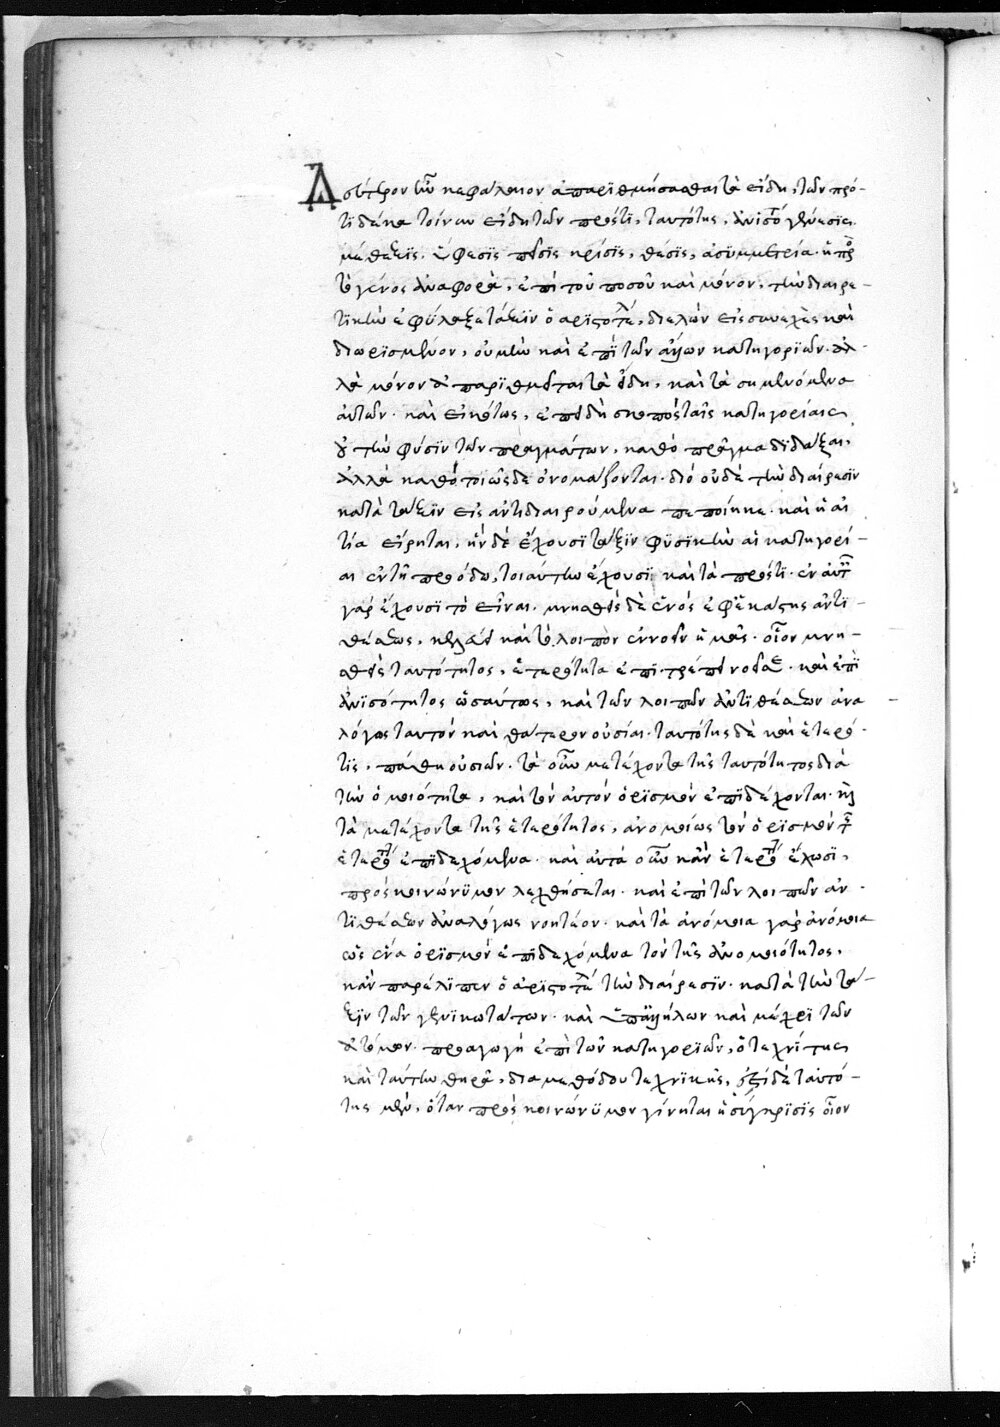 Δεύτερον ἦν κεφάλαιον ἀπαριθμήσασθαι τὰ εἴδη, τῶν πρό-
τι δέκα τοίνυν εἴδη τῶν πρός τι, ταυτότης, ἀνισό γένεσις
μέθεξις, ἔφεσις κρίσις, θέσις, ἀσυμμετρία ἡ πρὸς
τὸ γένος ἀναφορὰ, ἐπὶ τοῦ ποσοῦ καὶ μόνον, τὴν διαιρε-
τικὴν ἐφύλαξε τάξιν ὁ ἀριστοτέλ, διελὼν εἰς συνεχὲς καὶ
διωρισμένον, οὐ μὴν καὶ ἐπὶ τῶν ἄλλων κατηγοριῶν. ἀλ-
λὰ μόνον ἀπαριθμεῖται τὰ εἴδη, καὶ τὰ σημαινόμενα
αὐτῶν. καὶ εἰκότως, ἐπειδὴ σκοπὸς ταῖς κατηγορίαις
οὐ τὴν φύσιν τῶν πραγμάτων, καθὸ πρᾶγμα διδάξαι,
ἀλλὰ καθὸ τοιῶσδε ὀνομάζονται. διὸ οὐδὲ τὴν διαίρεσιν
κατὰ τάξιν εἰς ἀντιδιαιρούμενα πεποίηκε. καὶ ἡ αἰ
τία εἴρηται, ἣν δὲ ἔχουσι τάξιν φυσικὴν αἱ κατηγορί-
αι ἐν τῇ προόδῳ, τοιαύτην ἔχουσι καὶ τὰ πρός τι. ἐν αὐτ
γὰρ ἔχουσι τὸ εἶναι. μνησθεὶς δὲ ἑνὸς ἐφ' ἑκάστης ἀντι-
θέσεως, καὶ τὸ λοιπὸν ἐννοεῖν ἡμᾶς. οἷον μνη-
σθεὶς ταυτότητος, ἑτερότητα ἐπιτρέπει νοεῖσθαι. καὶ ἐπὶ
ἀνισότητος ὡσαύτως, καὶ τῶν λοιπῶν ἀντιθέσεων ἀνα
λόγως ταυτὸν καὶ θάτερον οὐσίαι. ταυτότης δὲ καὶ ἑτερό-
της, πάθη οὐσιῶν. τὰ οὖν μετέχοντα τῆς ταυτότητος διὰ
τὴν ὁμοιότητα, καὶ τὸν αὐτὸν ὁρισμὸν ἐπιδέχονται. καὶ
τὰ μετέχοντα τῆς ἑτερότητος, ἀνομοίως τὸν ὁρισμὸν τ
ἑτερό ἐπιδεχόμενα. καὶ αὐτὰ οὖν κἂν ἑτερό ἔχωσι,
πρὸς κοινώνυμον λεχθήσεται. καὶ ἐπὶ τῶν λοιπῶν ἀν-
τιθέσεων ἀναλόγως νοητέον. καὶ τὰ ἀνόμοια γὰρ ἀνόμοια
ὡς ἕνα ὁρισμὸν ἐπιδεχόμενα τὸν τῆς ἀνομοιότητος,
κἂν παρέλιπεν ὁ ἀριστοτέλ τὴν διαίρεσιν. κατὰ τὴν τά-
ξιν τῶν γενικωτάτων. καὶ ὑπαλλήλων καὶ μέχρι τῶν
ἀτόμων. προαγωγὴ ἐπὶ τῶν κατηγοριῶν, ὁ τεχνίτης
καὶ ταύτην θηρᾶ, δια μεθόδου τεχνικῆς, δὲ ταυτό-
της μὲν, ὅταν πρὸς κοινώνυμον γίνηται ἡ σύγκρισις οἷον